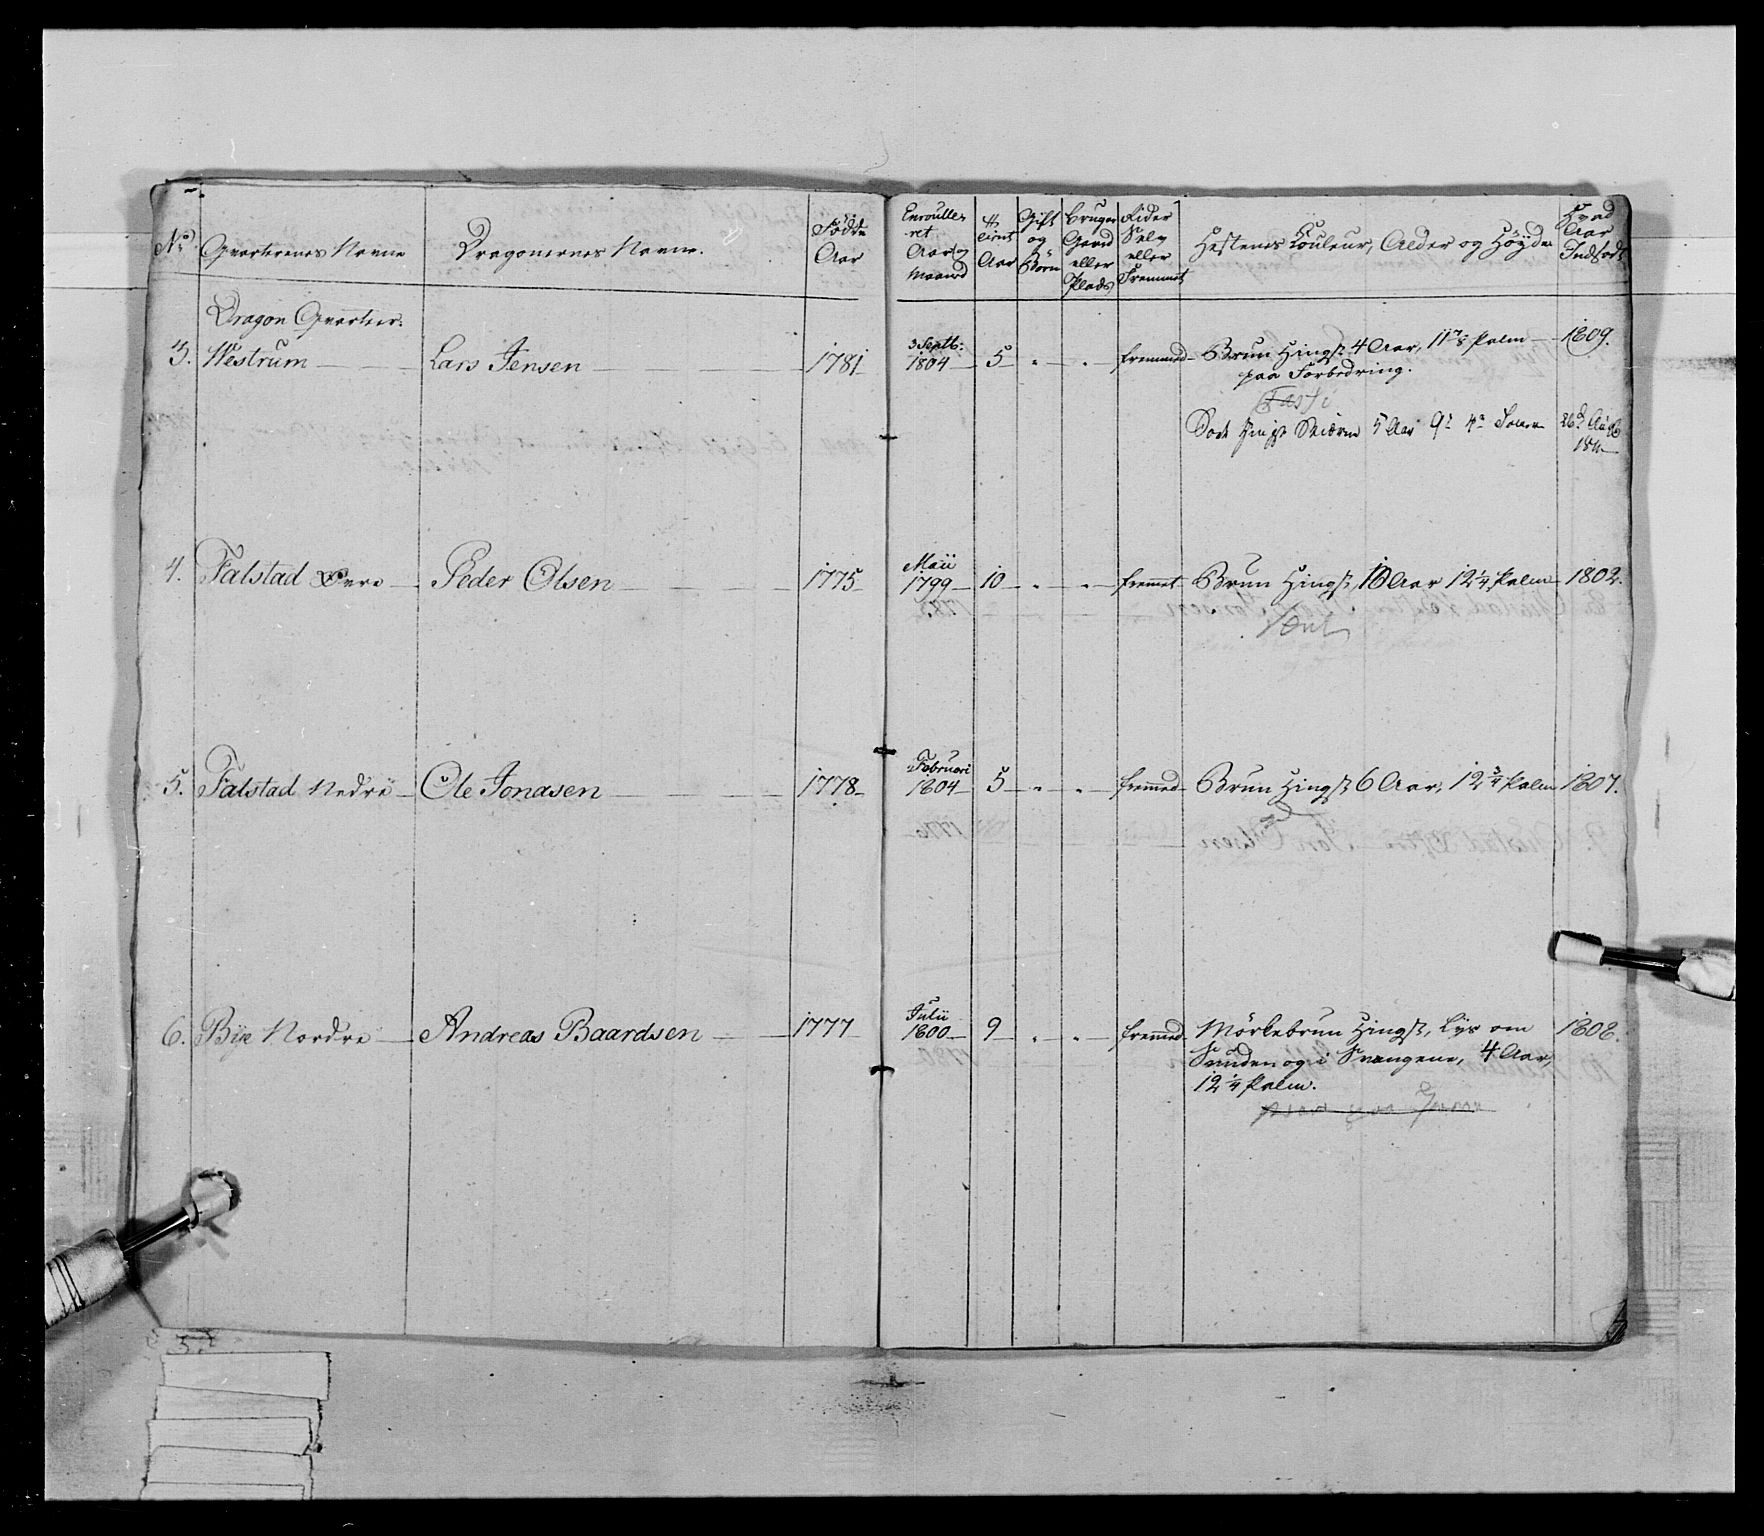 No Qvarterenes Navne Dragonernes Navne. Födte Aar Enroulleret Aar og Maaned Tient Aar Gift og Börn Bruger Gaard eller Plads Rider Selv eller Fremmet Hestenes Couleur, Alder og Höyde Hvad Aar Indsadt
Dragon Qvarteer.
3. Westrum Lars Jensen 1781 3 Septb: 1804 5 " " fremmed Brun Hingst 4 Aar, 11 7/8 Palm 1809.
paa Forbedring.
Sort Hingst 5 Aar 9 26 Aug
4. Falstad Övre Peder Olsen 1775 Maii 1799 10 " " fremet Brun Hingst, 10 Aar 12 1/4 Palm 1802.
5. Falstad Nedre Ole Jonasen 1778 Februari 1804 5 " " fremmed Brun Hingst 6 Aar, 12 3/4 Palm 1807.
6. Bye Nordre Andreas Baardsen 1777 Julii 1800 9 " " fremmed Mörkebrun Hingst, Lys om 1808.
Munden og i Svangene, 4 Aar,
12 1/4 Palm.